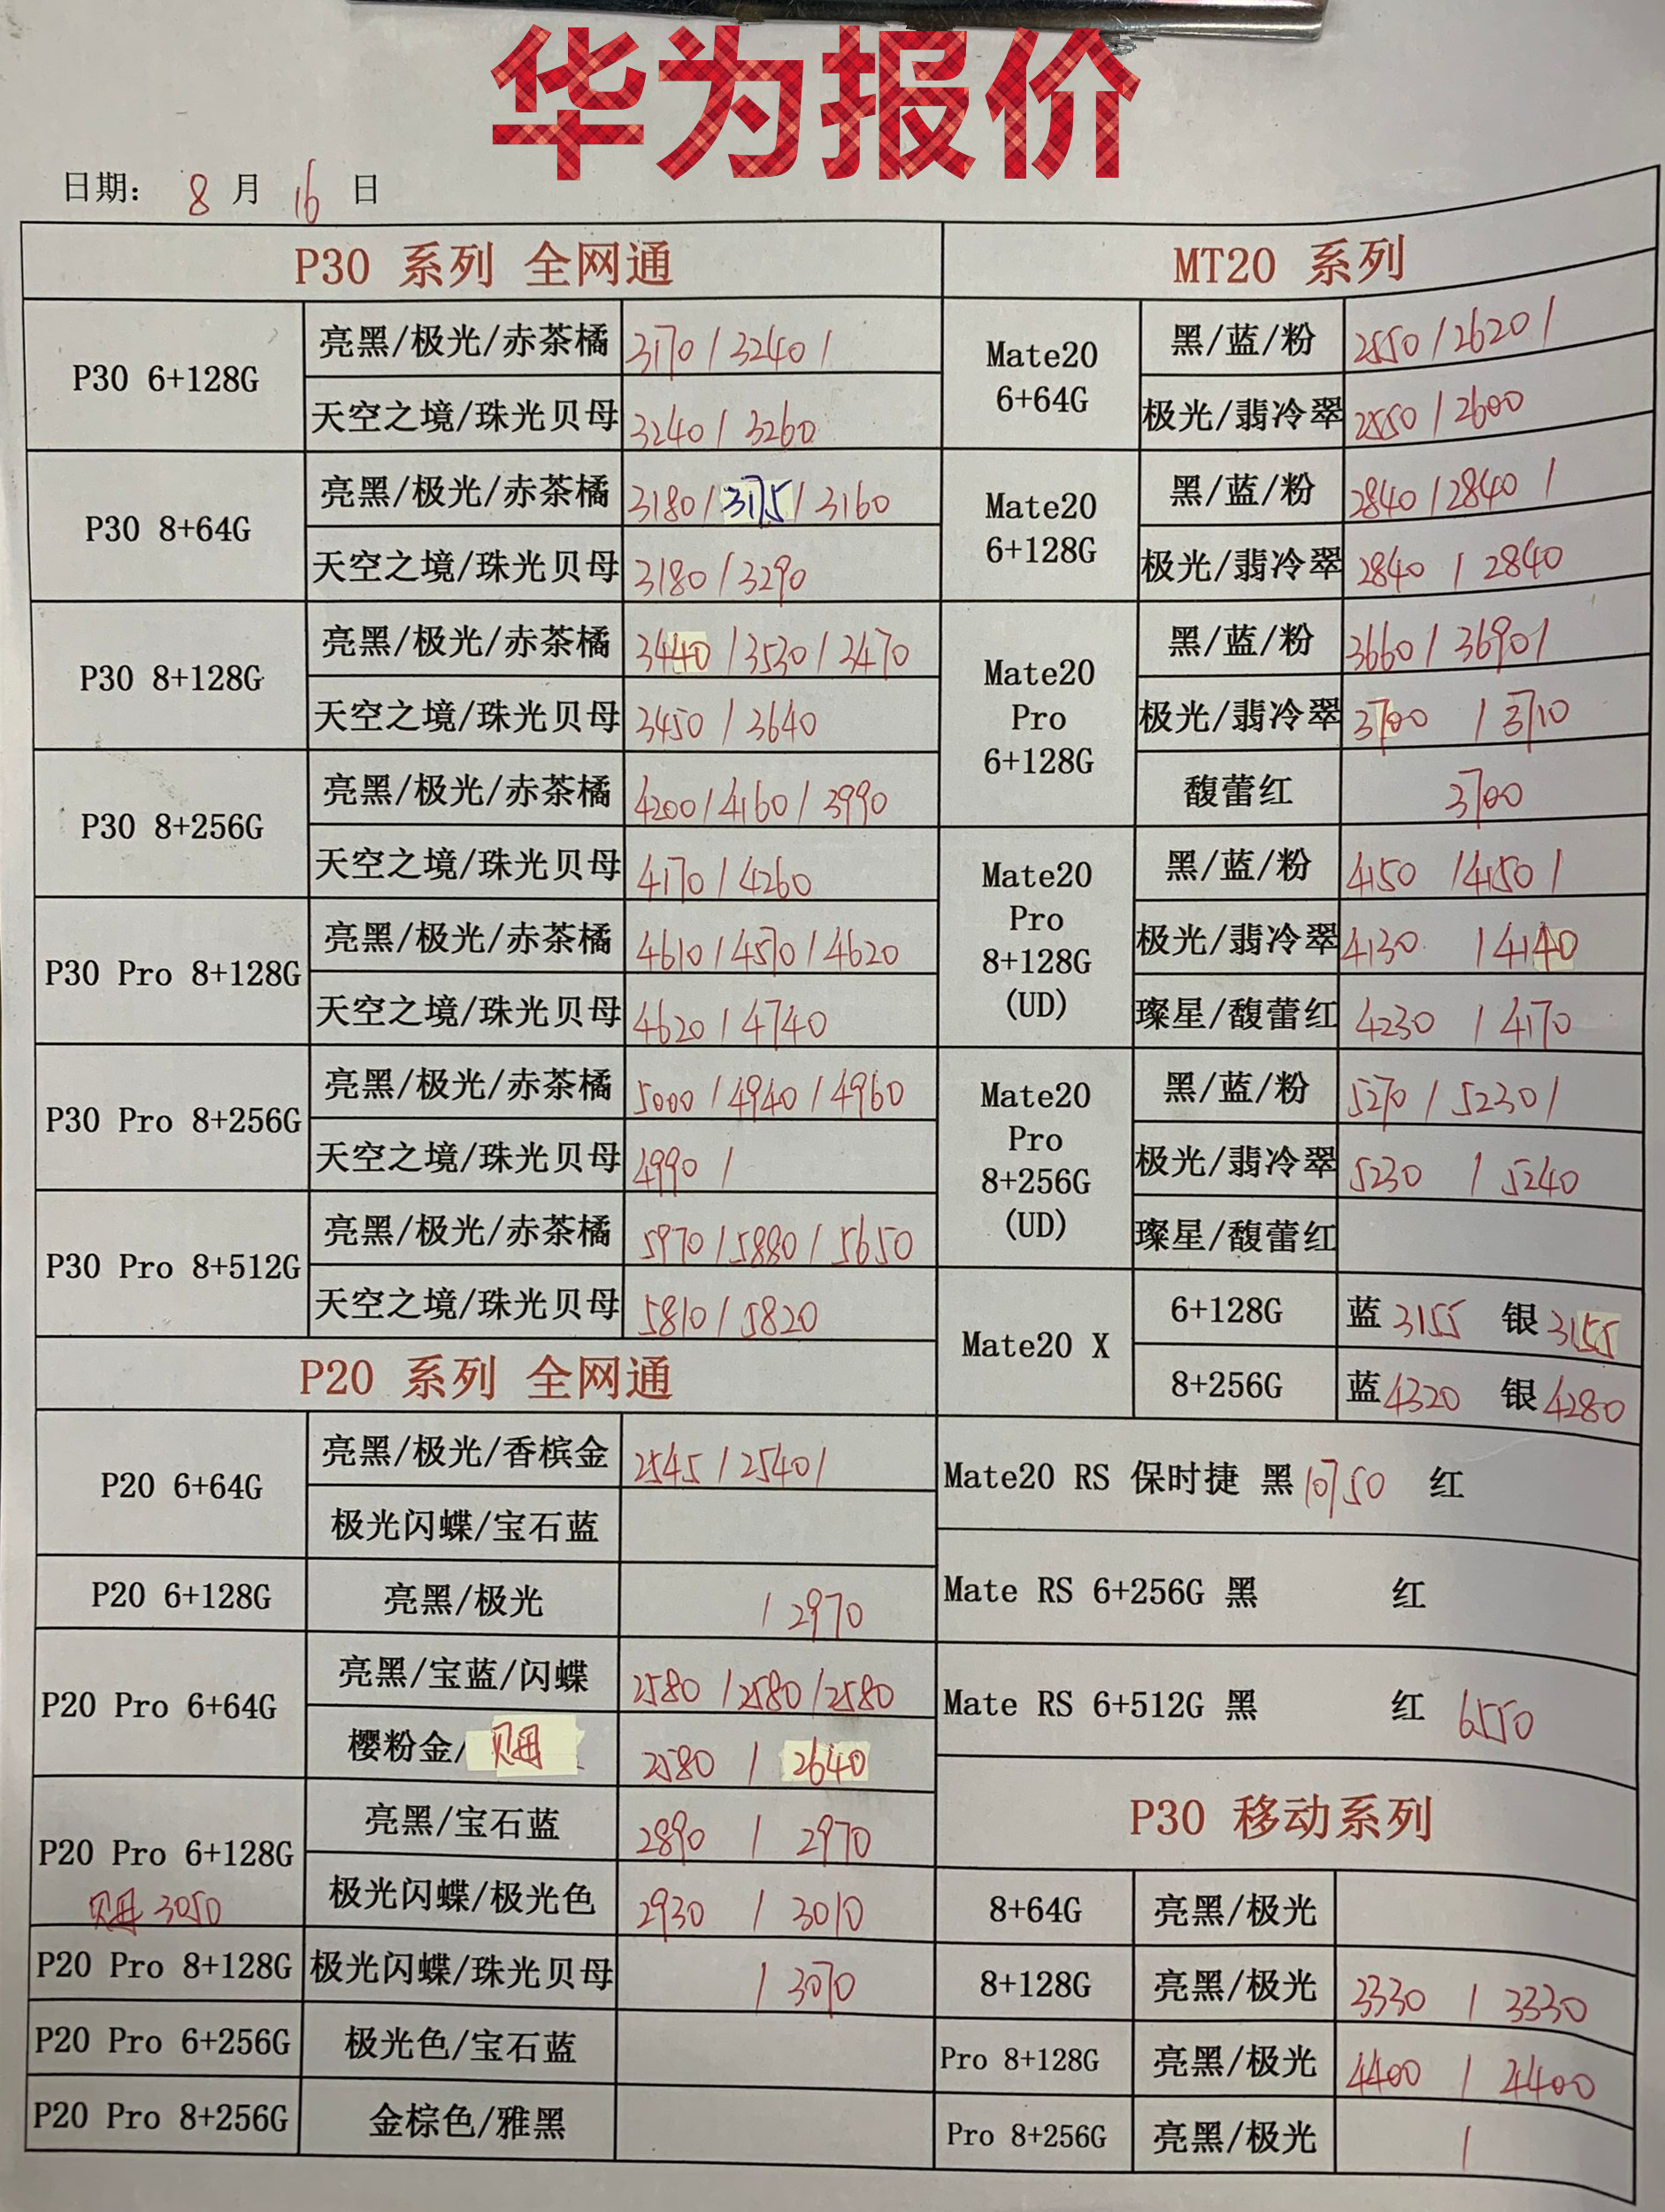 华为报价
日期: 8 月 16 日
P30 系列 全网通
P30 6+128G
亮黑/极光/赤茶橘 3170 / 3240 /
天空之境/珠光贝母 3240 / 3260
P30 8+64G
亮黑/极光/赤茶橘 3180 / 3175 / 3160
天空之境/珠光贝母 3180 / 3290
P30 8+128G
亮黑/极光/赤茶橘 3440 / 3530 / 3470
天空之境/珠光贝母 3450 / 3640
P30 8+256G
亮黑/极光/赤茶橘 4200 / 4160 / 3990
天空之境/珠光贝母 4170 / 4260
P30 Pro 8+128G
亮黑/极光/赤茶橘 4610 / 4570 / 4620
天空之境/珠光贝母 4620 / 4740
P30 Pro 8+256G
亮黑/极光/赤茶橘 5000 / 4940 / 4960
天空之境/珠光贝母 4990 /
P30 Pro 8+512G
亮黑/极光/赤茶橘 5970 / 5880 / 5650
天空之境/珠光贝母 5810 / 5820
P20 系列 全网通
P20 6+64G
亮黑/极光/香槟金 2545 / 2540 /
极光闪蝶/宝石蓝
P20 6+128G
亮黑/极光 / 2970
P20 Pro 6+64G
亮黑/宝蓝/闪蝶 2580 / 2580 / 2580
樱粉金/贝母 2580 / 2640
P20 Pro 6+128G
贝母 3050
亮黑/宝石蓝 2890 / 2970
极光闪蝶/极光色 2930 / 3010
P20 Pro 8+128G 极光闪蝶/珠光贝母 / 3070
P20 Pro 6+256G 极光色/宝石蓝
P20 Pro 8+256G 金棕色/雅黑
MT20 系列
Mate20
6+64G
黑/蓝/粉 2550 / 2620 /
极光/翡冷翠 2550 / 2600
Mate20
6+128G
黑/蓝/粉 2840 / 2840 /
极光/翡冷翠 2840 / 2840
Mate20
Pro
6+128G
黑/蓝/粉 3660 / 3690 /
极光/翡冷翠 3700 / 3710
馥蕾红 3700
Mate20
Pro
8+128G
(UD)
黑/蓝/粉 4150 / 4150 /
极光/翡冷翠 4130 / 4140
璨星/馥蕾红 4230 / 4170
Mate20
Pro
8+256G
(UD)
黑/蓝/粉 5270 / 5230 /
极光/翡冷翠 5230 / 5240
璨星/馥蕾红
Mate20 X
6+128G 蓝 3155 银 3155
8+256G 蓝 4320 银 4280
Mate20 RS 保时捷 黑 10750 红
Mate RS 6+256G 黑 红
Mate RS 6+512G 黑 红 6550
P30 移动系列
8+64G 亮黑/极光
8+128G 亮黑/极光 3330 / 3330
Pro 8+128G 亮黑/极光 4400 / 4400
Pro 8+256G 亮黑/极光 /